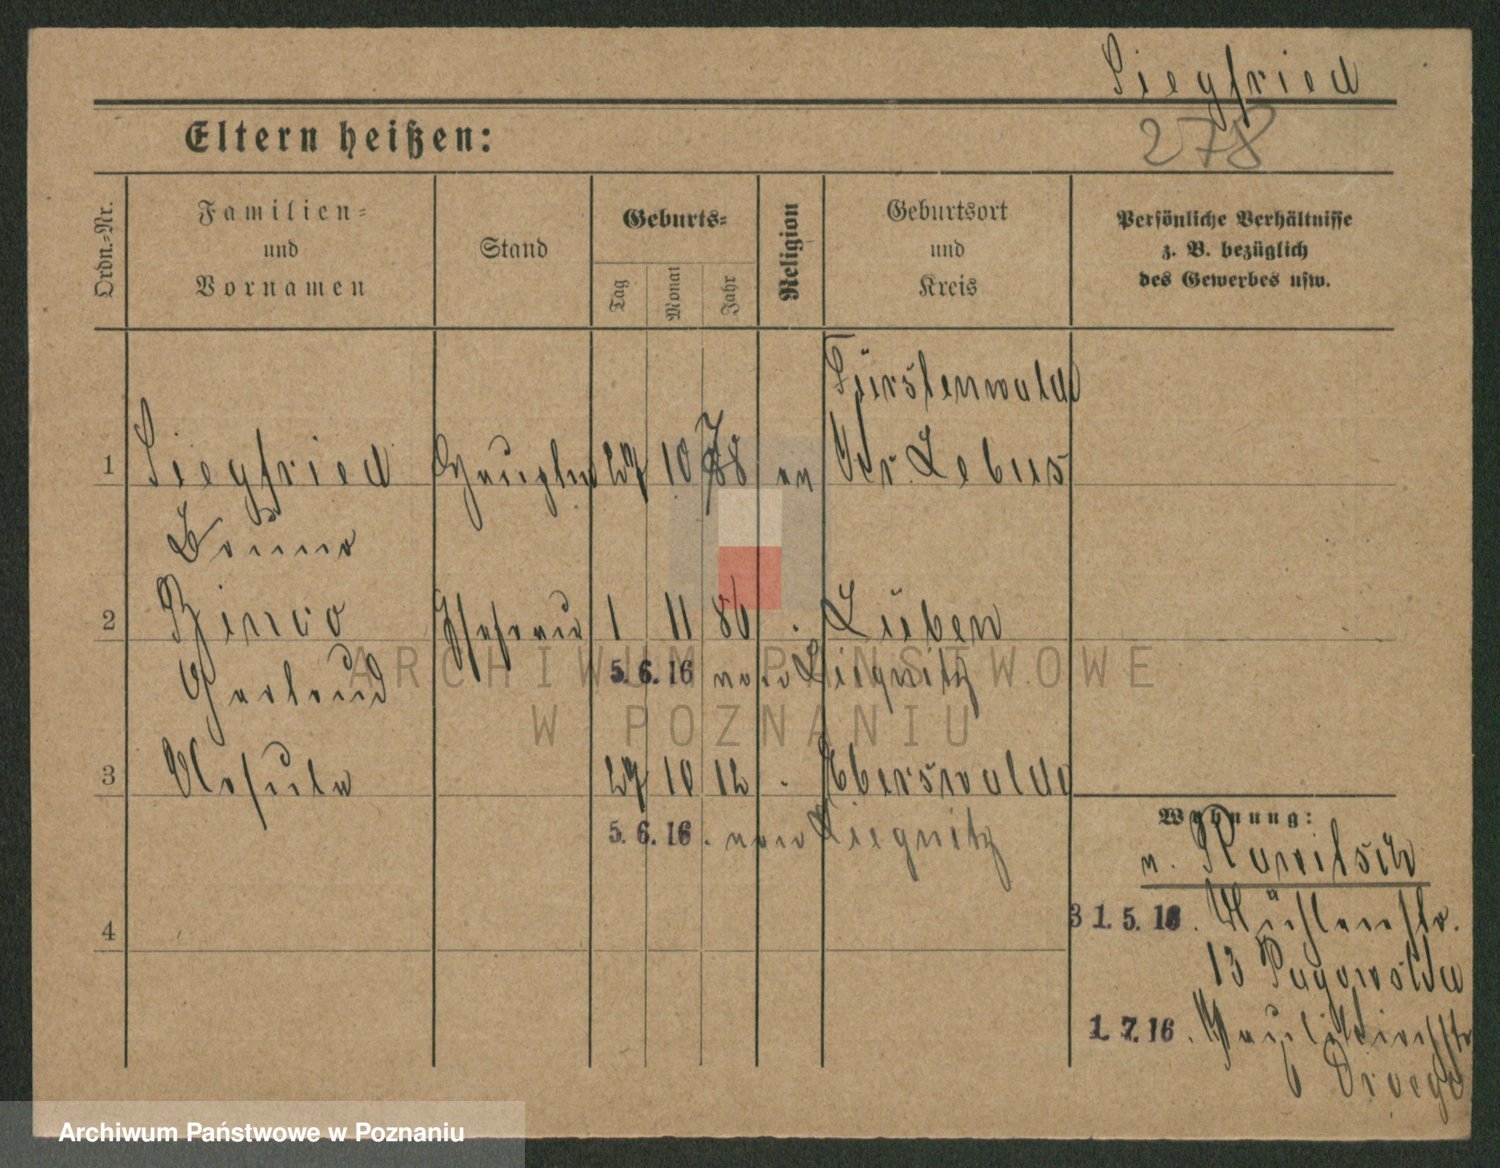 Siegfried
278
Eltern heißen:
Ordn.-Nr.
Familien-
und
Vornamen
Stand
Geburts-
Tag
Monat
Jahr
Religion
Geburtsort
und
Kreis
Persönliche Verhältnisse
z. B. bezüglich
des Gewerbes usw.
Fürstenwalde
1 Siegfried 27 10 78 ev Kr. Lebus
Bruno
2 11 86 Lüben
Gertrud 5. 6. 16 von Liegnitz
3 Ursula 27 10 12 Eberswalde
Wohnung:
5. 6. 16. von Liegnitz
v. Rawitsch
31. 5. 16. Mühlenstr.
4
13
1. 7. 16. Paulikirchstr
6
ARCHIWUM PAŃSTWOWE
W POZNANIU
Archiwum Państwowe w Poznaniu